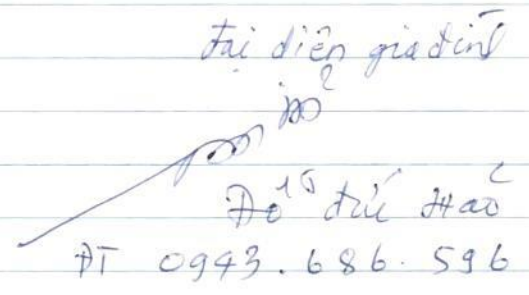 Đại diện gia đình
Đỗ đức Hảo
ĐT 0943.686.596